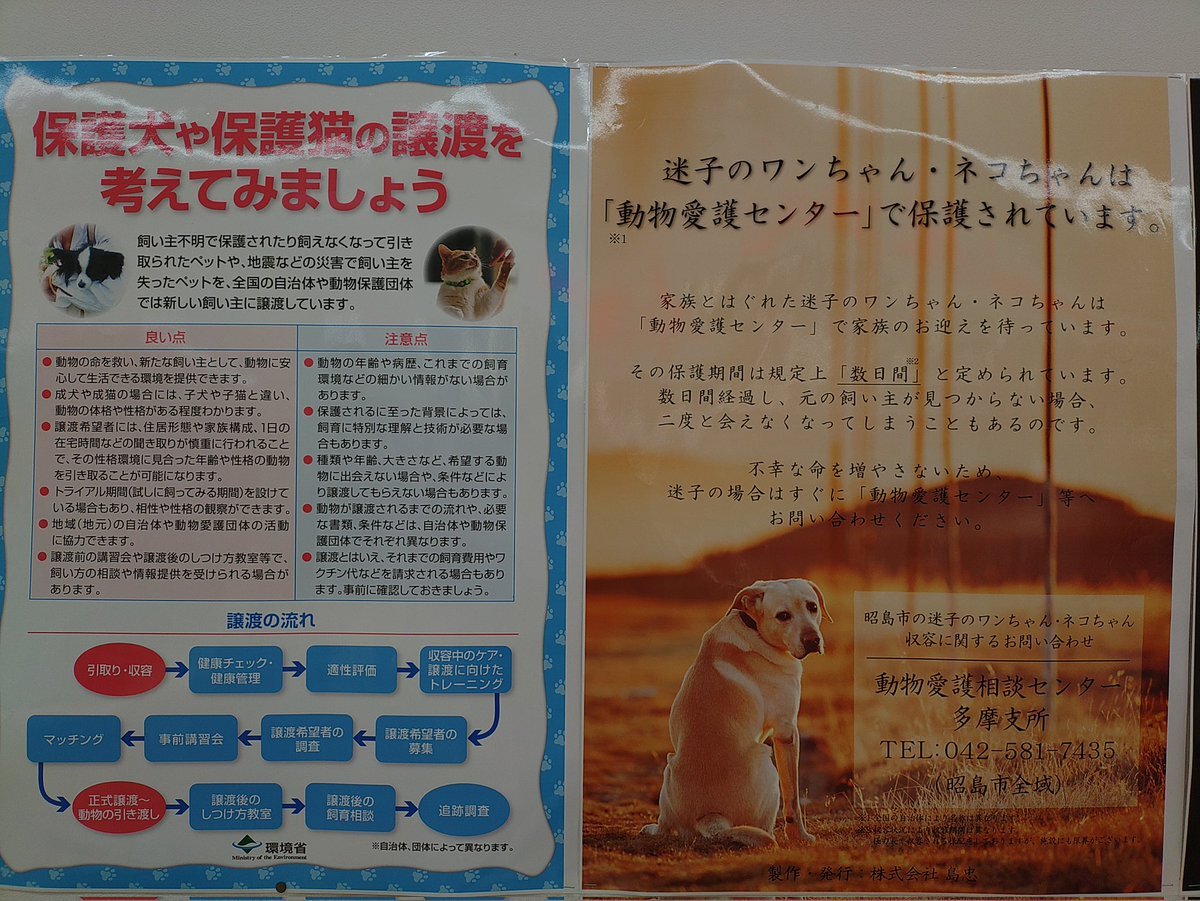 保護犬や保護猫の譲渡を
考えてみましょう
飼い主不明で保護されたり飼えなくなって引き
取られたペットや、地震などの災害で飼い主を
失ったペットを、全国の自治体や動物保護団体
では新しい飼い主に譲渡しています。
良い点
● 動物の命を救い、新たな飼い主として、動物に安
心して生活できる環境を提供できます。
● 成犬や成猫の場合には、子犬や子猫と違い、
動物の体格や性格がある程度わかります。
● 譲渡希望者には、住居形態や家族構成、1日の
在宅時間などの聞き取りが慎重に行われること
で、その性格環境に見合った年齢や性格の動物
を引き取ることが可能になります。
● トライアル期間(試しに飼ってみる期間)を設けて
いる場合もあり、相性や性格の観察ができます。
● 地域(地元)の自治体や動物愛護団体の活動
に協力できます。
● 譲渡前の講習会や譲渡後のしつけ方教室等で、
飼い方の相談や情報提供を受けられる場合が
あります。
注意点
● 動物の年齢や病歴、これまでの飼育
環境などの細かい情報がない場合が
あります。
● 保護されるに至った背景によっては、
飼育に特別な理解と技術が必要な場
合もあります。
● 種類や年齢、大きさなど、希望する動
物に出会えない場合や、条件などによ
り譲渡してもらえない場合もあります。
● 動物が譲渡されるまでの流れや、必要
な書類、条件などは、自治体や動物保
護団体でそれぞれ異なります。
● 譲渡とはいえ、それまでの飼育費用やワ
クチン代などを請求される場合もあり
ます。事前に確認しておきましょう。
譲渡の流れ
引取り・収容
健康チェック・
健康管理
適性評価
収容中のケア・
譲渡に向けた
トレーニング
譲渡希望者の
募集
譲渡希望者の
調査
事前講習会
マッチング
正式譲渡〜
動物の引き渡し
譲渡後の
しつけ方教室
譲渡後の
飼育相談
追跡調査
環境省
Ministry of the Environment
※自治体、団体によって異なります。
迷子のワンちゃん・ネコちゃんは
「動物愛護センター」で保護されています。
※1
家族とはぐれた迷子のワンちゃん・ネコちゃんは
「動物愛護センター」で家族のお迎えを待っています。
※2
その保護期間は規定上「数日間」と定められています。
数日間経過し、元の飼い主が見つからない場合、
二度と会えなくなってしまうこともあるのです。
不幸な命を増やさないため、
迷子の場合はすぐに「動物愛護センター」等へ
お問い合わせください。
昭島市の迷子のワンちゃん・ネコちゃん
収容に関するお問い合わせ
動物愛護相談センター
多摩支所
TEL:042-581-7435
(昭島市全域)
※1 全国の自治体により名称は異なります。
製作・発行:株式会社 島忠